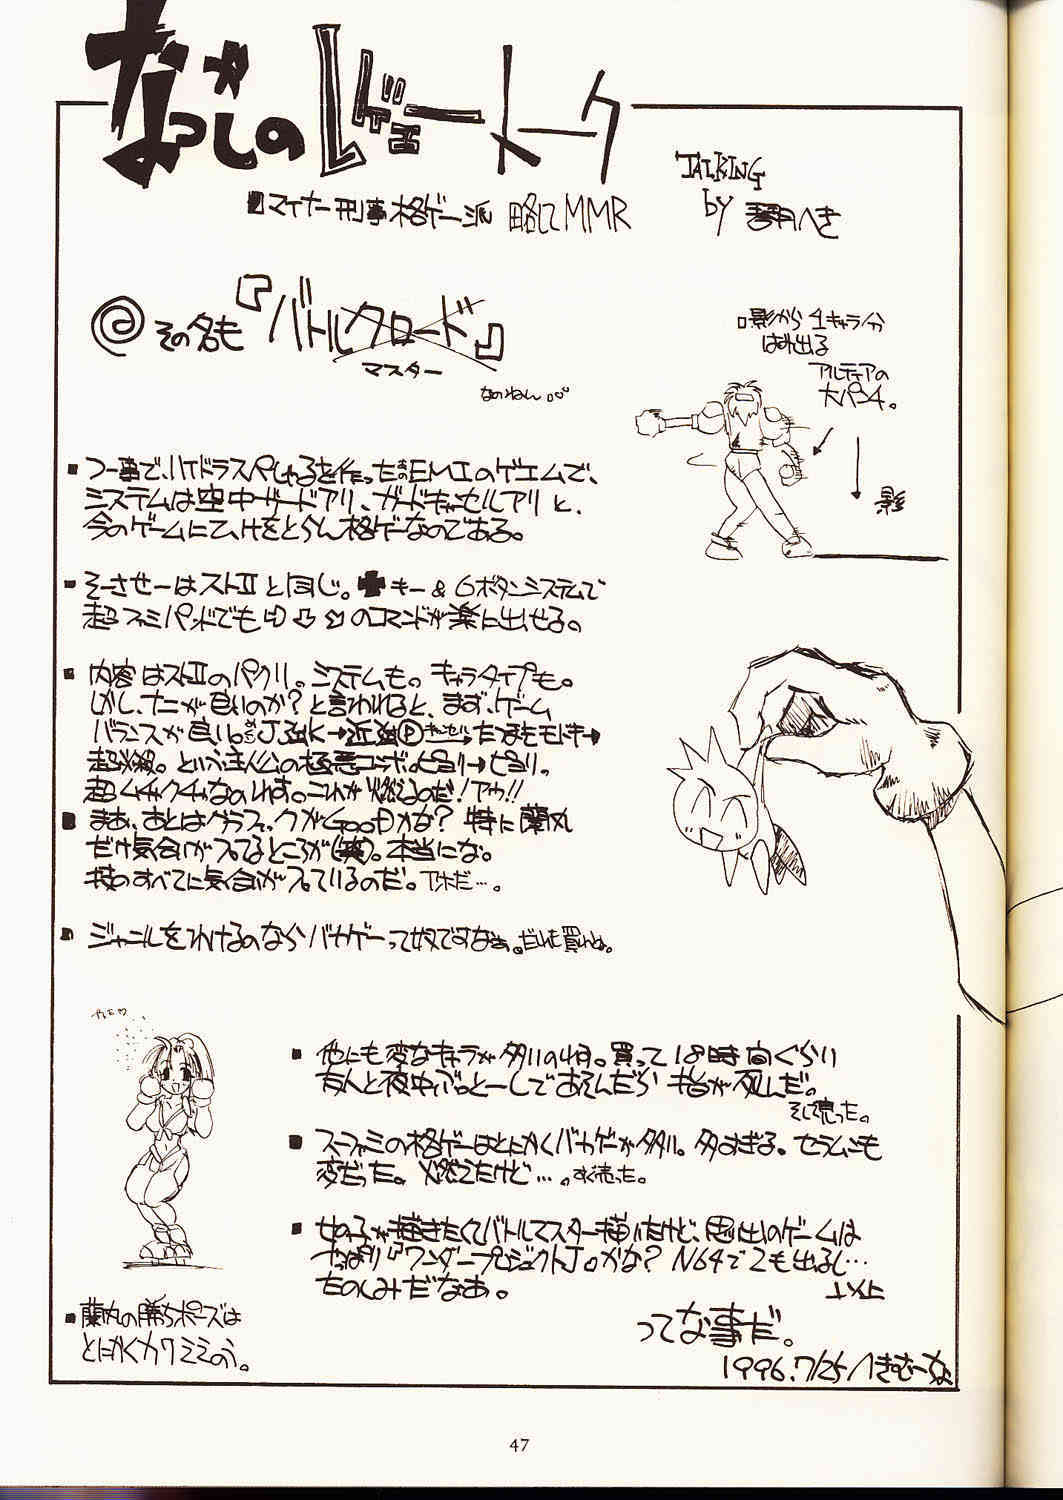 なつかしのレヴュートーク
TALKING
by 琴月へき
■マイナー刑事格ゲー派 略してMMR
@その名も『バトルクロード』
マスター
なのねん
□影から1キャラ分
はみ出る
アルティアの
大パンチ。
影
■つー事で、ハイドラスペしゃるを作ったあのEMIのゲエムで、
システムは空中ガードアリ、ガードキャンセルアリと、
今のゲームにひけをとらん格ゲーなのである。
■そーさせーはストⅡと同じ。✚キー&6ボタンシステムで
超ファミパッドでも⇨⇩⬂のコマンドが楽に出せる。
■内容はストⅡのパクリ。システムも。キャラタイプも。
しかし、ナニが良いのか?と言われると、まず、ゲーム
バランスが良い。めくりJ強K→近強Ⓟキャンセル→たつまきモドキ→
超必殺。という主人公の極悪コンボ。ピヨリ→ピヨリ。
超ムチャクチャなのれす。これが燃えるのだ!アゥ!!
■まあ、あとはグラフィックがGooDかな?特に蘭丸
だけ気合いが入ってるところが(笑)。本当にな。
技のすべてに気合が入っているのだ。アホだ…。
■ジャンルをわけるのならバカゲーって奴ですなぁ。だれも買わんね。
■他にも変なキャラが多いの以。買って18時間ぐらい
友人と夜中ぶっとーしであそんだら指が死んだ。
そして売った。
■スーファミの格ゲーはとにかくバカゲーが多い。多すぎる。セラムンも
変だった。燃えたけど…。すぐ売った。
■女の子が描きたくてバトルマスター描いたけど、思い出のゲームは
やっぱり『ワンダープロジェクトJ』かな?N64で2も出るし…
たのしみだなあ。
以上
■蘭丸の勝ちポーズは
とにかくカワミミのう。
ってな事だ。
1996.7/25/へきむーな
47